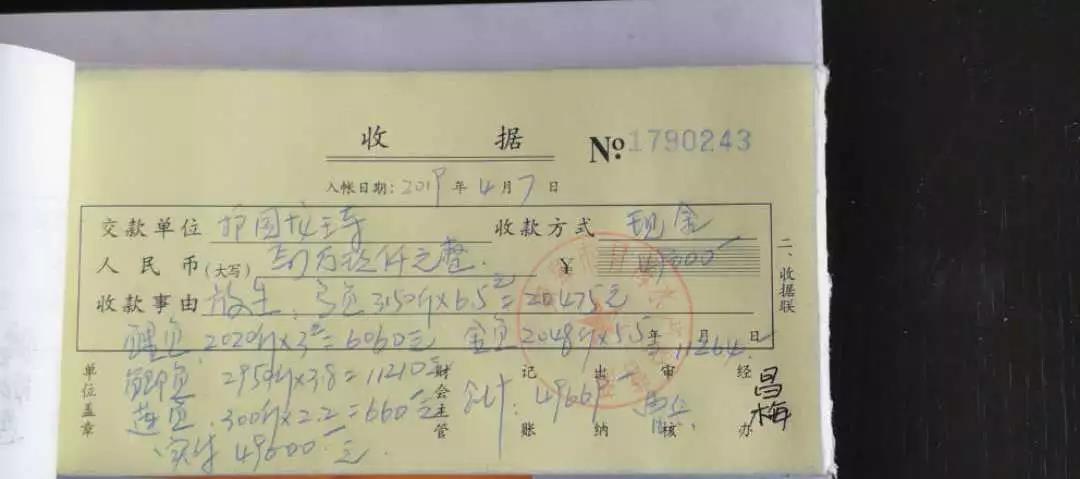 收 据 № 1790243
入帐日期：2019年4月7日
交款单位 护国龙王寺 收款方式 现金
人民币(大写) 万 仟元整 ￥ 49000
收款事由 放生 3150斤×6.5=20475元
2020斤×3=6060元 2048斤×5.5 11264
鲫鱼 2950斤×3.8=11210元 合计: 49669
莲鱼 300斤×2.2=660元
实付 49000元
年 月 日
单位盖章 财会主管 记账 出纳 审核 经办 昌梅
二、收据联